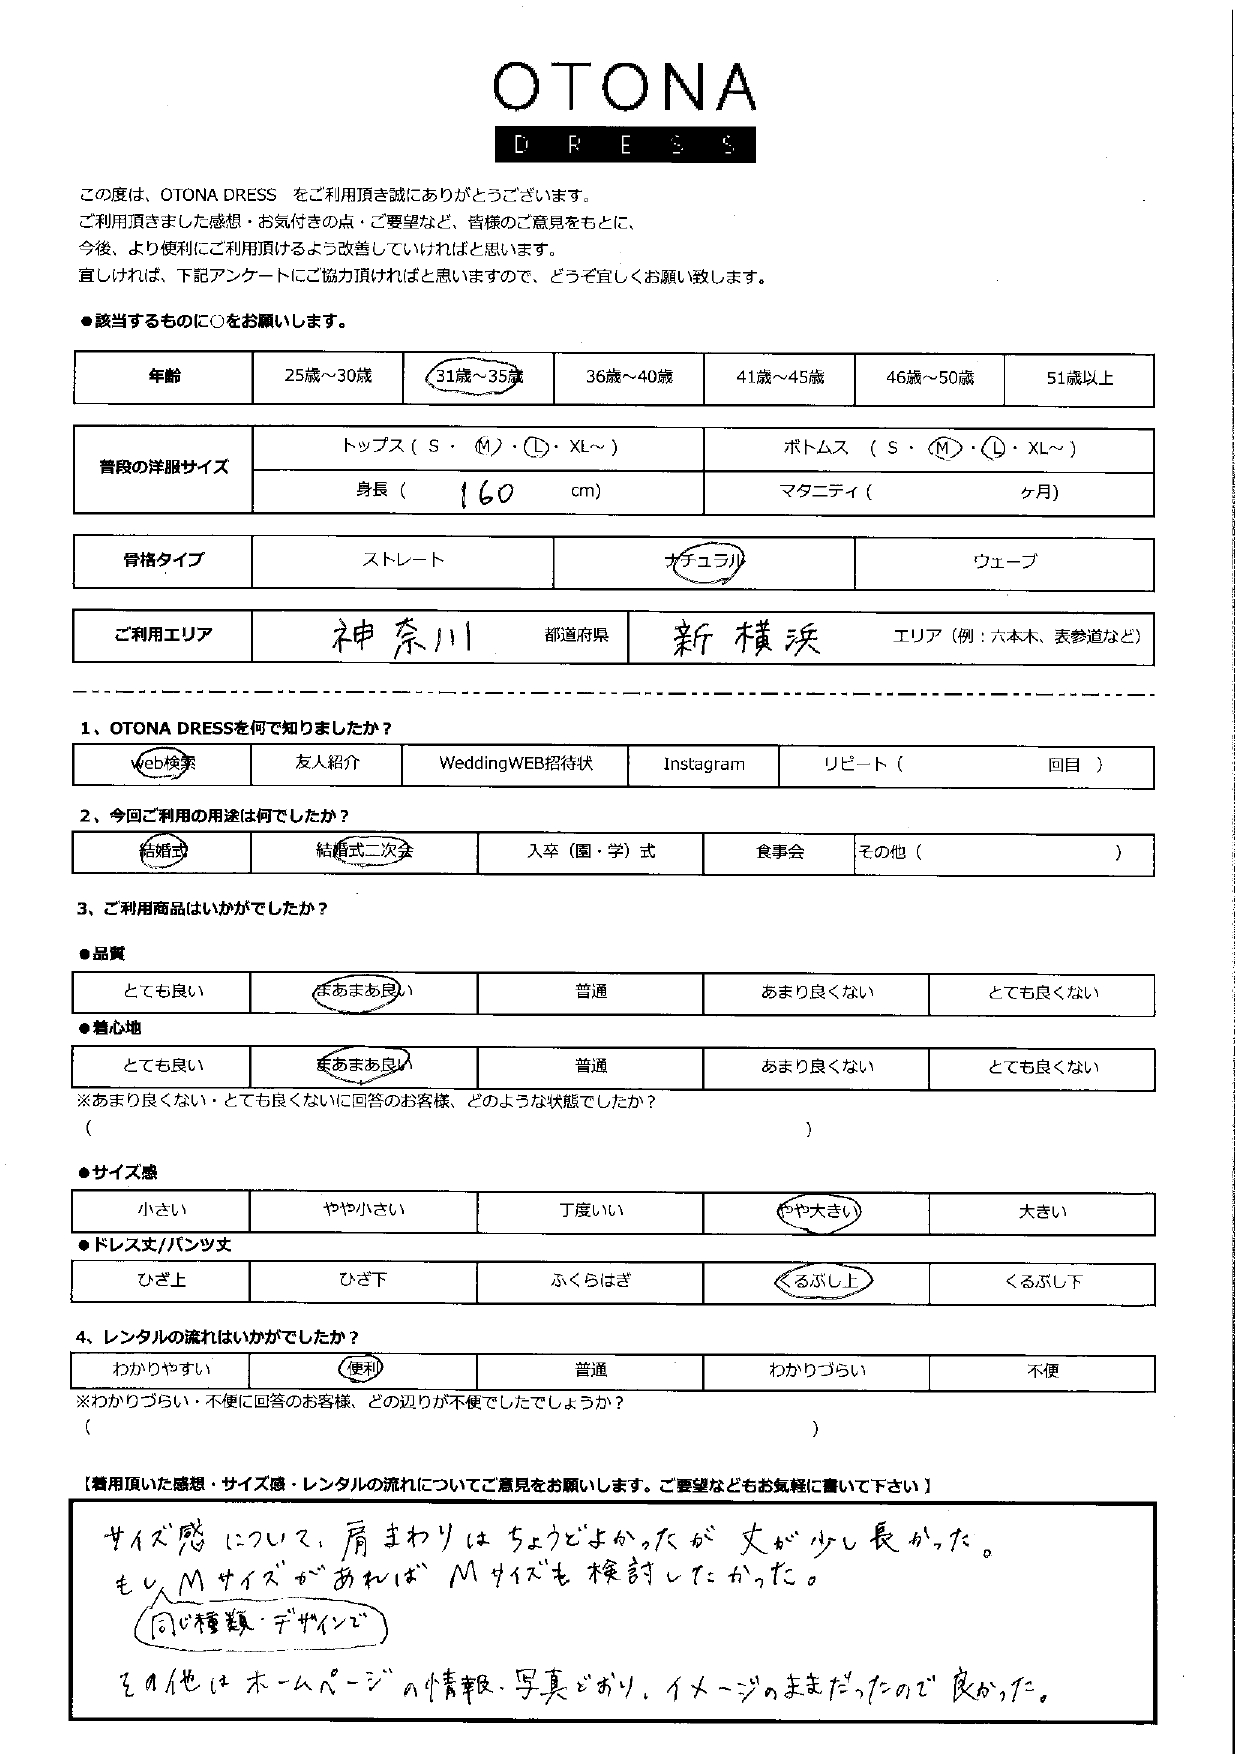 OTONA
DRESS
この度は、OTONA DRESS をご利用頂き誠にありがとうございます。
ご利用頂きました感想・お気付きの点・ご要望など、皆様のご意見をもとに、
今後、より便利にご利用頂けるよう改善していければと思います。
宜しければ、下記アンケートにご協力頂ければと思いますので、どうぞ宜しくお願い致します。
●該当するものに○をお願いします。
年齢 25歳～30歳 31歳～35歳 36歳～40歳 41歳～45歳 46歳～50歳 51歳以上
普段の洋服サイズ トップス ( S ・ M ・ L ・ XL～ ) ボトムス ( S ・ M ・ L ・ XL～ )
身長 ( 160 cm) マタニティ ( ケ月)
骨格タイプ ストレート ナチュラル ウェーブ
ご利用エリア 神奈川 都道府県 新横浜 エリア（例：六本木、表参道など）
1、OTONA DRESSを何で知りましたか？
web検索 友人紹介 WeddingWEB招待状 Instagram リピート ( 回目 )
2、今回ご利用の用途は何でしたか？
結婚式 結婚式二次会 入卒（園・学）式 食事会 その他 ( )
3、ご利用商品はいかがでしたか？
●品質
とても良い まあまあ良い 普通 あまり良くない とても良くない
●着心地
とても良い まあまあ良い 普通 あまり良くない とても良くない
※あまり良くない・とても良くないに回答のお客様、どのような状態でしたか？
( )
●サイズ感
小さい やや小さい 丁度いい やや大きい 大きい
●ドレス丈/パンツ丈
ひざ上 ひざ下 ふくらはぎ くるぶし上 くるぶし下
4、レンタルの流れはいかがでしたか？
わかりやすい 便利 普通 わかりづらい 不便
※わかりづらい・不便に回答のお客様、どの辺りが不便でしたでしょうか？
( )
【着用頂いた感想・サイズ感・レンタルの流れについてご意見をお願いします。ご要望などもお気軽に書いて下さい】
サイズ感について、肩まわりはちょうどよかったが丈が少し長かった。
もしMサイズがあればMサイズも検討したかった。
同じ種類・デザインで
その他はホームページの情報・写真どおり、イメージのままだったので良かった。